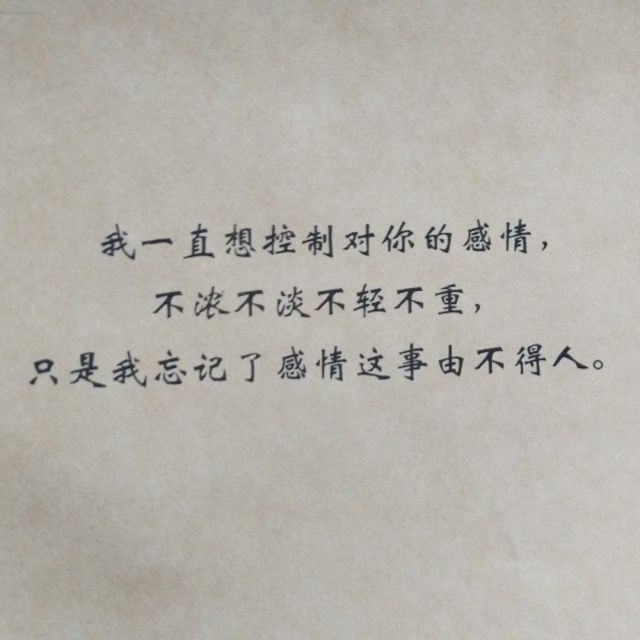 我一直想控制对你的感情，
不浓不淡不轻不重，
只是我忘记了感情这事由不得人。